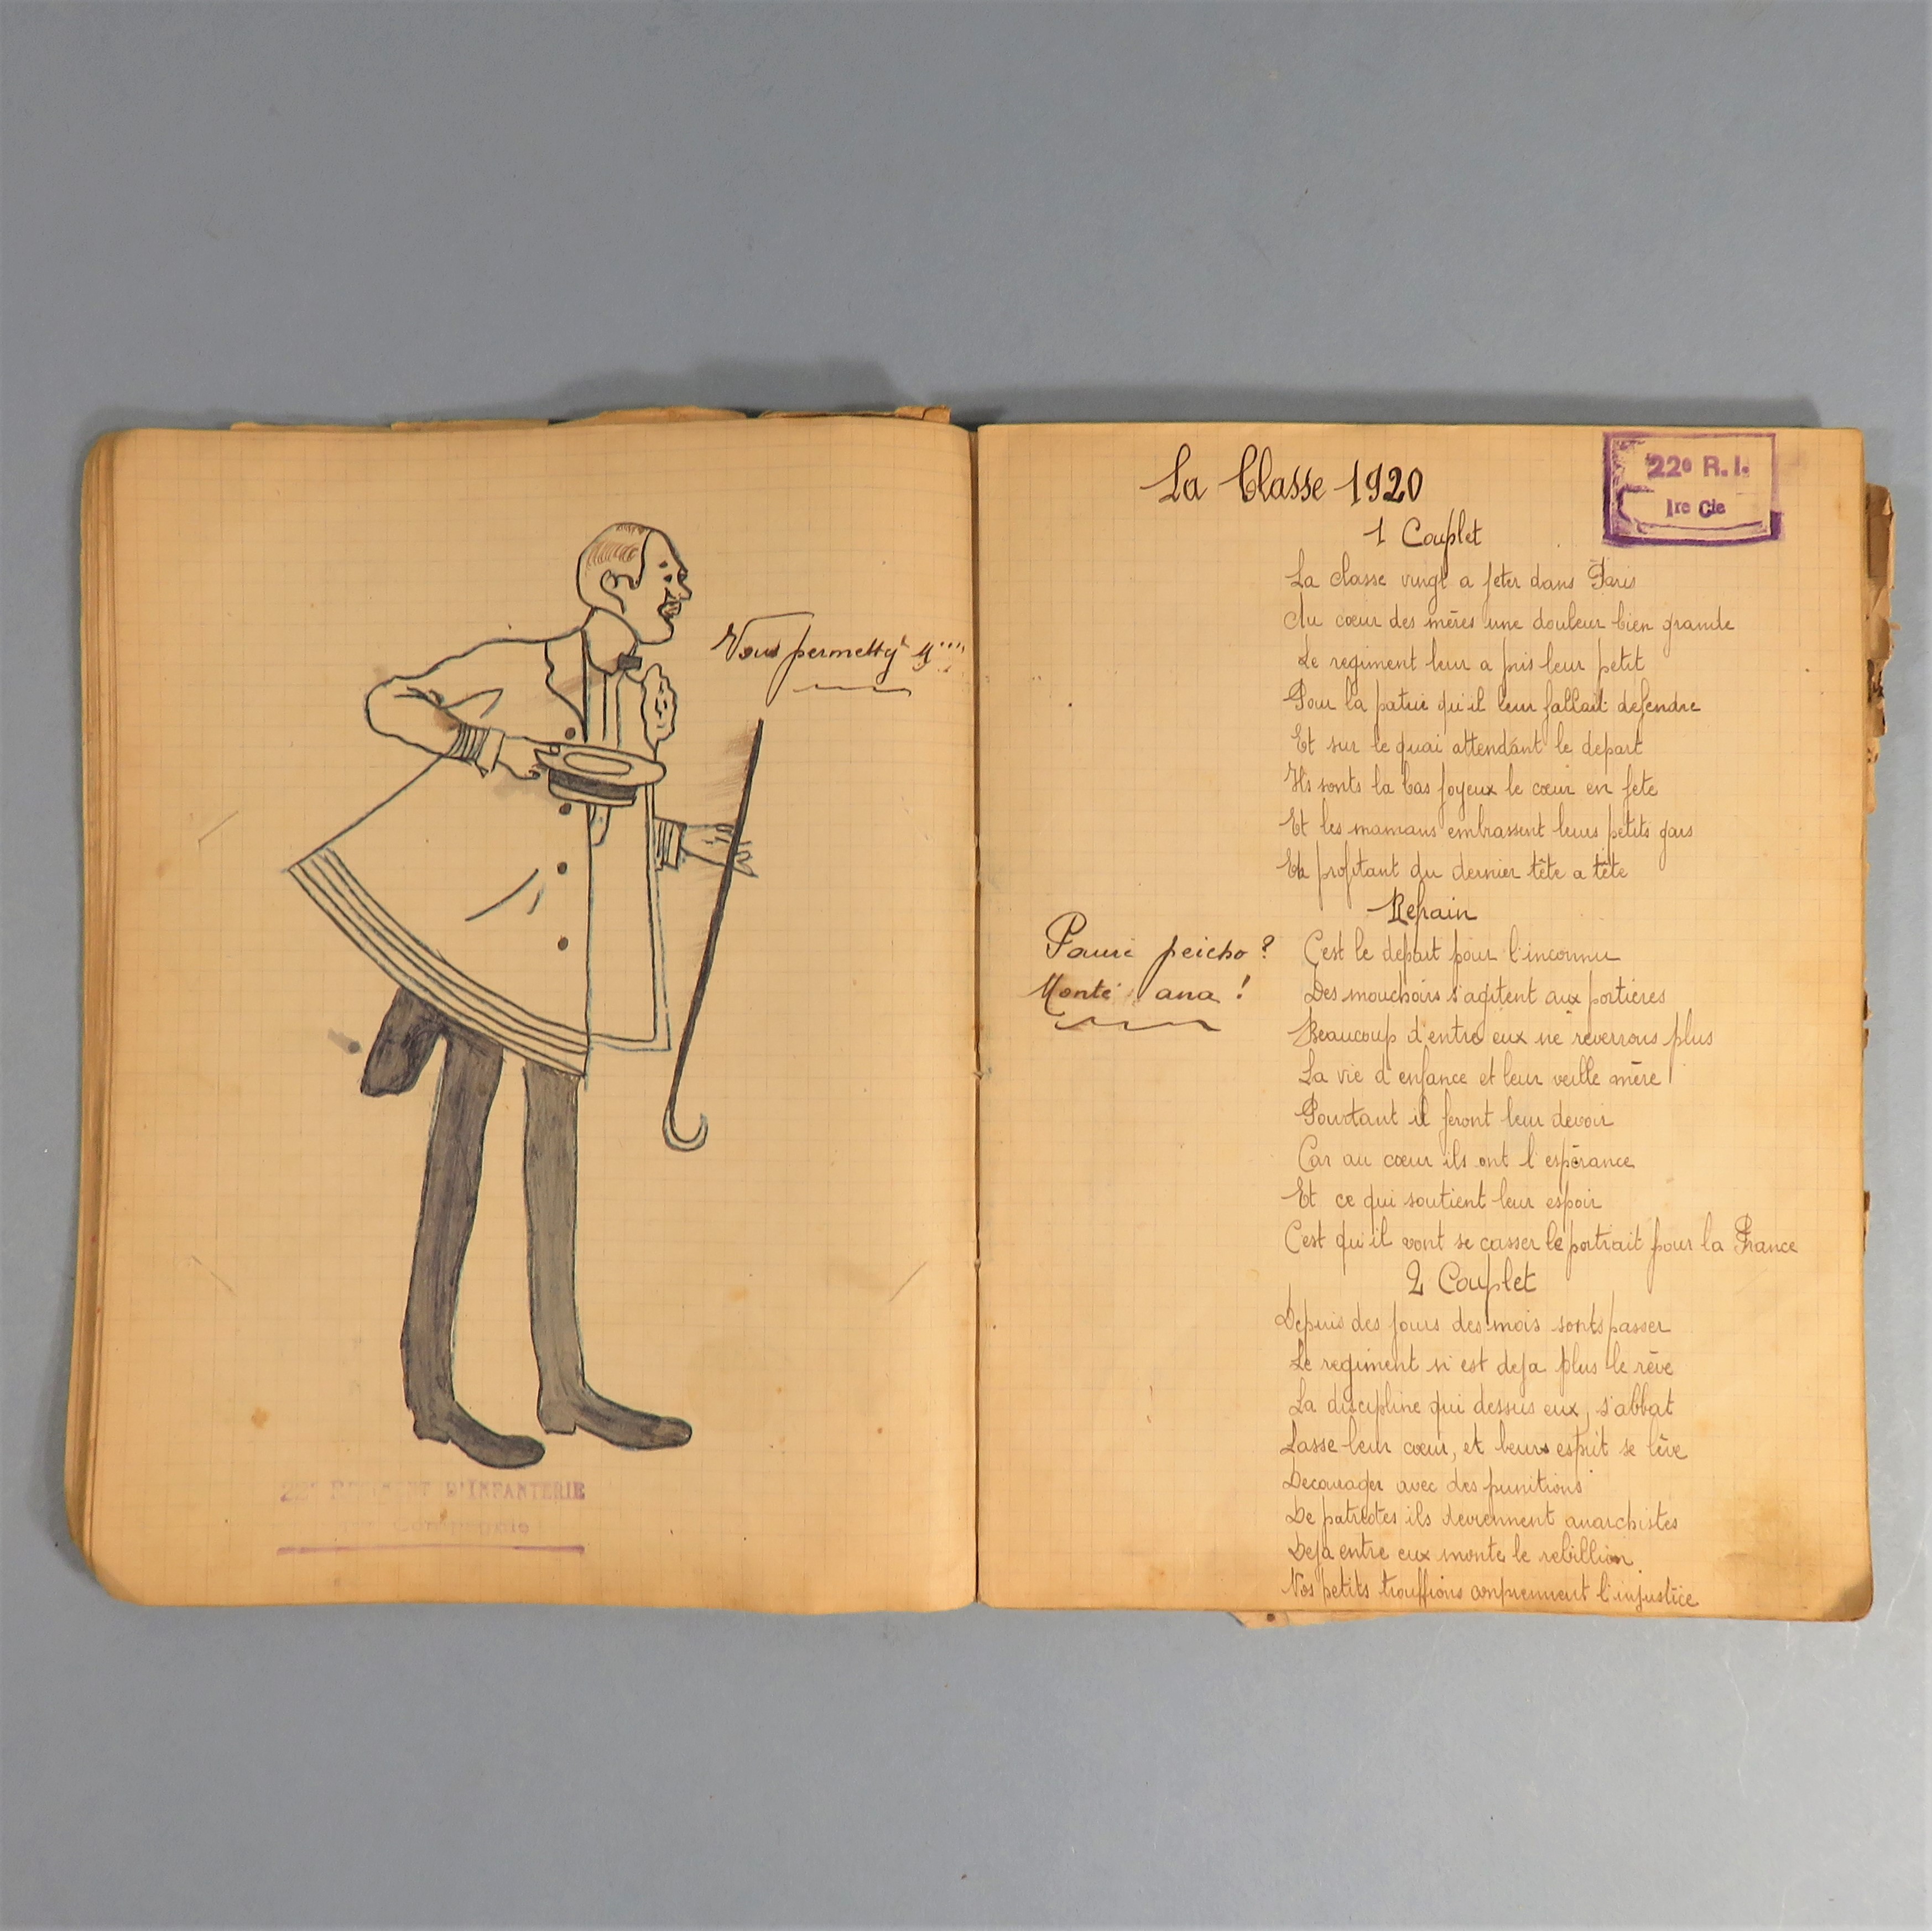 Vous permettez
22e REGIMENT D'INFANTERIE
Compagnie
La Classe 1920
22e R.I.
1re Cie
1 Couplet
La classe vingt a feter dans Paris
Au cœur des mères une douleur bien grande
Le regiment leur a pris leur petit
Pour la patrie qu'il leur fallait defendre
Et sur le quai attendant le depart
Ils sonts la bas joyeux le cœur en fete
Et les mamans embrassent leurs petits gars
En profitant du dernier tête a tête
Refrain
C'est le depart pour l'inconnu
Des mouchoirs s'agitent aux portieres
Beaucoup d'entre eux ne reverrons plus
La vie d'enfance et leur veille mère
Pourtant il feront leur devoir
Car au cœur ils ont l'espèrance
Et ce qui soutient leur espoir
C'est qu'il vont se casser le portrait pour la France
Pauri peicho ?
Monté ana !
2 Couplet
Depuis des jours des mois sonts passer
Le regiment n'est deja plus le rêve
La discipline qui dessus eux, s'abbat
Lasse leur cœur, et leurs esprit se lève
Decourager avec des punitions
De patriotes ils deviennent anarchistes
Deja entre eux monte le rebillion
Nos petits trouffions conprennent l'injustice